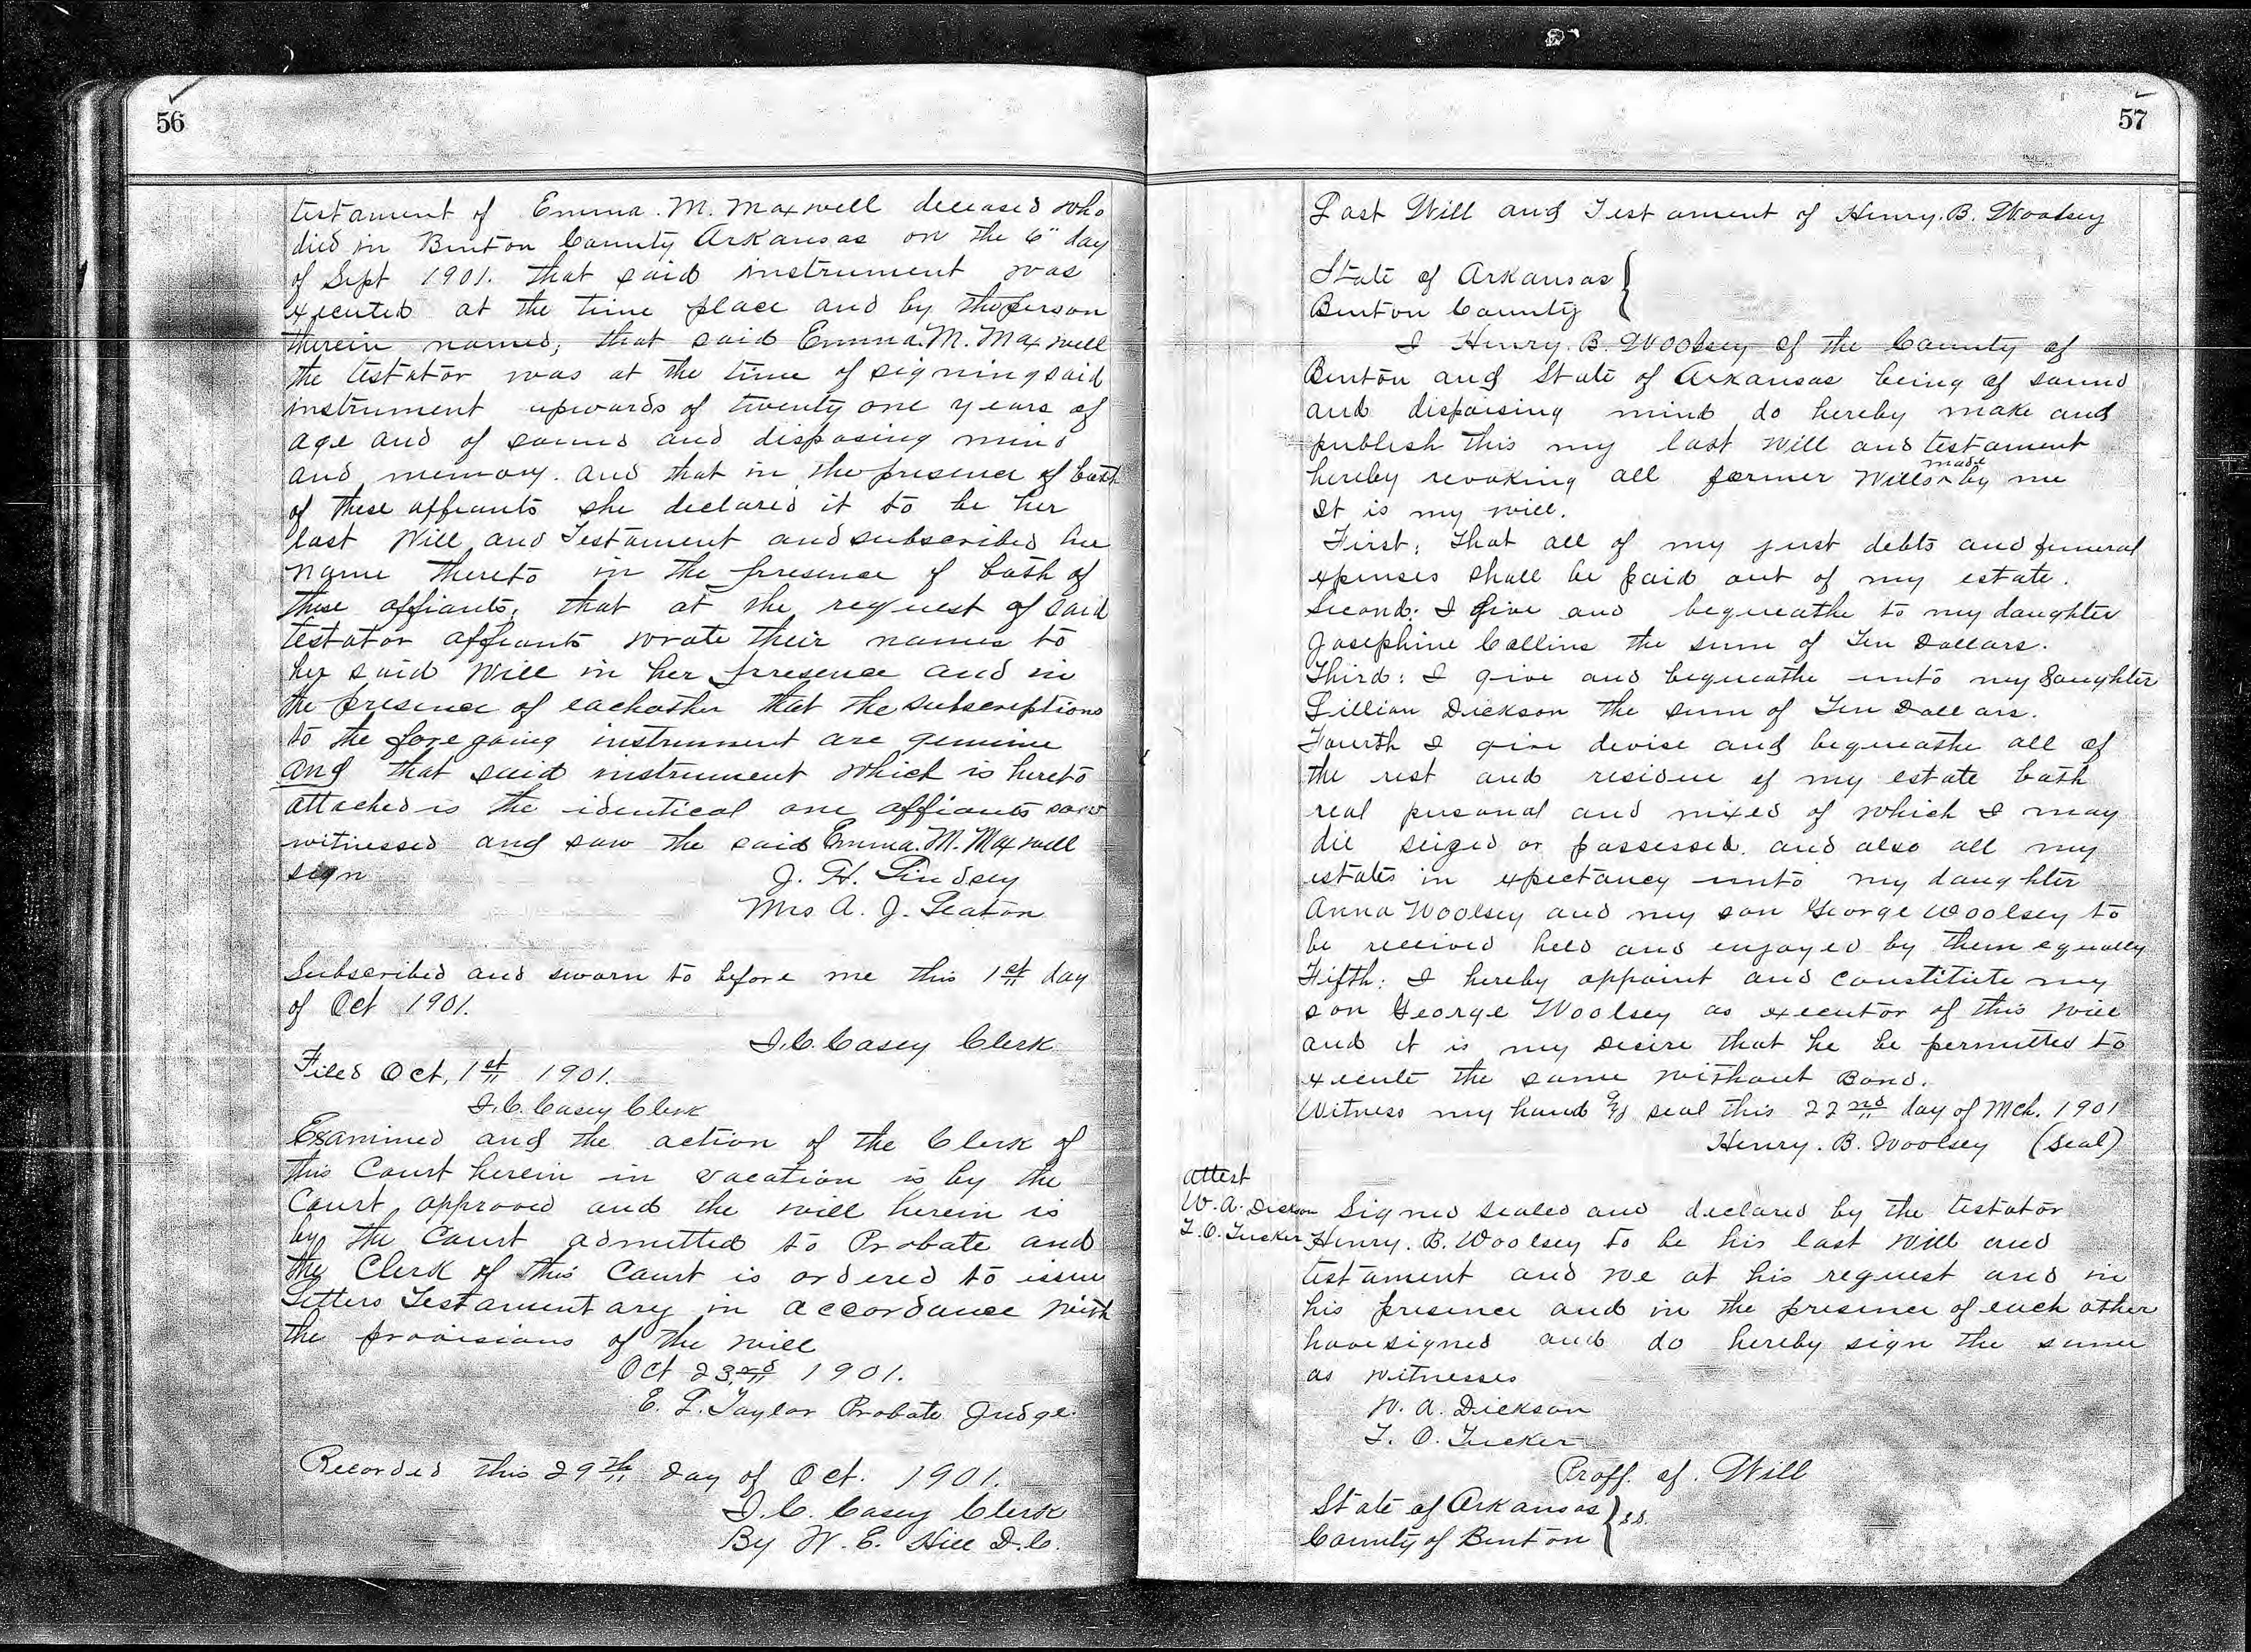 56
testament of Emma. M. Maxwell deceased who
died in Benton County Arkansas on the 6" day
of Sept 1901. that said instrument was
executed at the time place and by the person
therein named, that said Emma. M. Maxwell
the testator was at the time of signing said
instrument upwards of twenty one years of
age and of sound and disposing mind
and memory. and that in the presence of both
of these affiants she declared it to be her
last Will and Testament and subscribed her
name thereto in the presence of both of
these affiants, that at the request of said
testator affiants wrote their names to
her said Will in her presence and in
the presence of eachother that the subscriptions
to the foregoing instrument are genuine
and that said instrument which is hereto
attached is the identical one affiants saw
witnessed and saw the said Emma. M. Maxwell
sign
J. H. Lindsey
Mrs A. J. Seaton
Subscribed and sworn to before me this 1st day
of Oct 1901.
J. C. Casey Clerk
Filed Oct, 1st 1901.
J. C. Casey Clerk
Examined and the action of the Clerk of
this Court herein in vacation is by the
Court approved and the will herein is
by the Court admitted to Probate and
the Clerk of this Court is ordered to issue
Letters Testamentary in accordance with
the provisions of the will
Oct 23rd 1901.
E. L. Taylor Probate Judge.
Recorded this 29th day of Oct. 1901.
J. C. Casey Clerk
By W. E. Hill D.C.
57
Last Will and Testament of Henry. B. Woolsey
State of Arkansas }
Benton County
I Henry. B. Woolsey of the County of
Benton and State of Arkansas being of sound
and disposing mind do hereby make and
publish this my last will and testament
hereby revoking all former Wills ^made by me
It is my will.
First; That all of my just debts and funeral
expenses shall be paid out of my estate.
Second: I give and bequeathe to my daughter
Josephine Collins the sum of Ten Dollars.
Third: I give and bequeathe unto my daughter
Lillian Dickson the sum of Ten Dollars.
Fourth I give devise and bequeathe all of
the rest and residue of my estate both
real personal and mixed of which I may
die seized or possessed. and also all my
estates in expectancy unto my daughter
Anna Woolsey and my son George Woolsey to
be received held and enjoyed by them equally
Fifth: I hereby appoint and constitute my
son George Woolsey as executor of this will
and it is my desire that he be permitted to
execute the same without Bond.
Witness my hand & seal this 22nd day of Mch. 1901
Henry. B. Woolsey (seal)
Attest
W. A. Dickson
T. O. Tucker
Signed sealed and declared by the testator
Henry. B. Woolsey to be his last Will and
testament and we at his request and in
his presence and in the presence of each other
have signed and do hereby sign the same
as witnesses
W. A. Dickson
T. O. Tucker
Proff. of. Will
State of Arkansas } s.s.
County of Benton